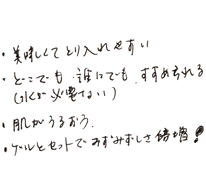 ・美味しくてとり入れやすい
・どこでも 誰にでも すすめられる
(水が必要ない)
・肌がうるおう.
・ゲルとセットでみずみずしさ倍増!